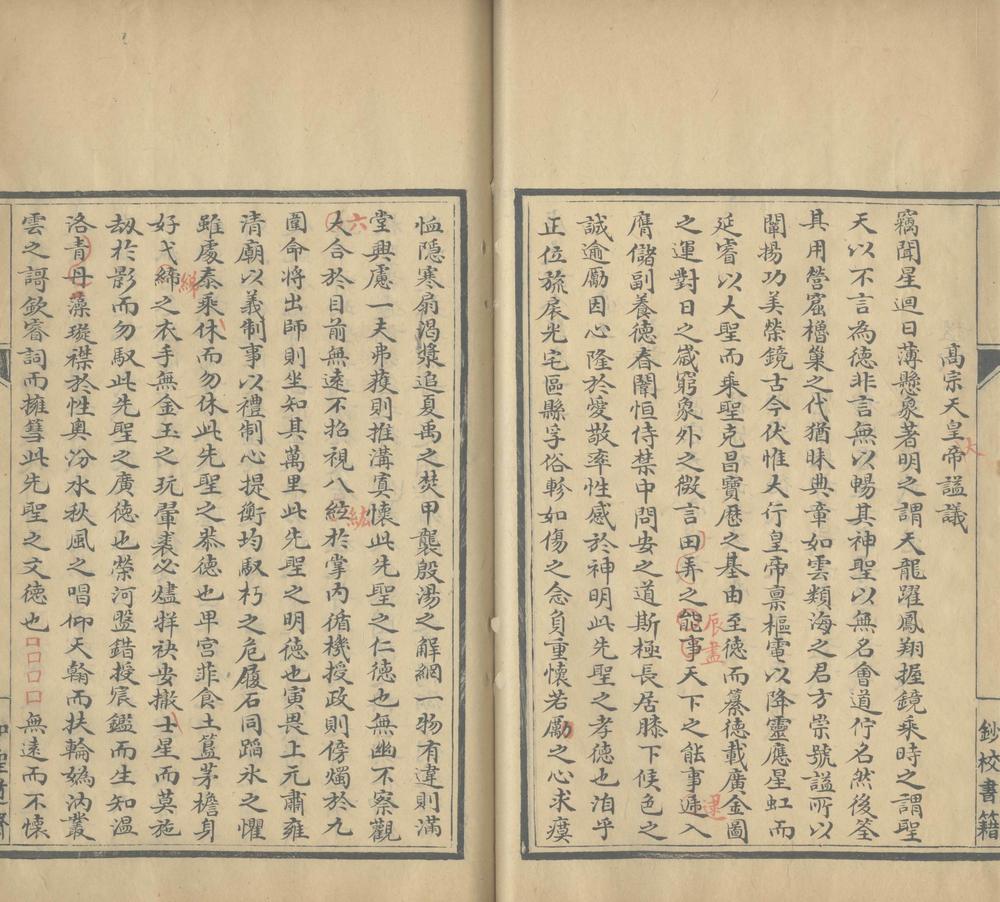 高宗天皇帝謚議
大
竊聞星迴日薄懸象著明之謂天龍躍鳳翔握鏡乘時之謂聖
天以不言為德非言無以暢其神聖以無名會道佇名然後筌
其用營窟櫓巢之代猶昧典章如雲類海之君方崇號謚所以
闡揚功美榮鏡古今伏惟大行皇帝稟樞電以降靈應星虹而
延睿以大聖而乘聖克昌寶曆之基由至德而纂德載廣金圖
之運對日之歲窮象外之微言田弄之能事天下之能事遞入
辰盡
逮
膺儲副養德春闈恒侍禁中問安之道斯極長居膝下候色之
誠逾勵因心隆於愛敬率性感於神明此先聖之孝德也洎乎
正位旒扆光宅區縣孚俗軫如傷之念負重懷若勵之心求瘼
鈔校書籍
恤隱寒扇渴漿追夏禹之焚甲襲殷湯之解網一物有違則滿
堂興慮一夫弗獲則推溝寘懷此先聖之仁德也無幽不察觀
六
大合於目前無遠不招視八紘於掌內循機授政則傍燭於九
紘
圍命將出師則坐知其萬里此先聖之明德也寅畏上元肅雍
清廟以義制事以禮制心提衡均馭朽之危履石同蹈氷之懼
雖處泰乘休而勿休此先聖之恭德也卑宮菲食土簋茅檐身
好弋締之衣手無金玉之玩翬裘必燼牂袂安撤士星而莫施
綈
刼於影而勿馭此先聖之廣德也榮河蹔錯授宸鑑而生知溫
洛青毋藻璇襟於性奥汾水秋風之唱仰天翰而扶輪嬀汭叢
雲之謌欽睿詞而擁篲此先聖之文德也□□□□無遠而不懷